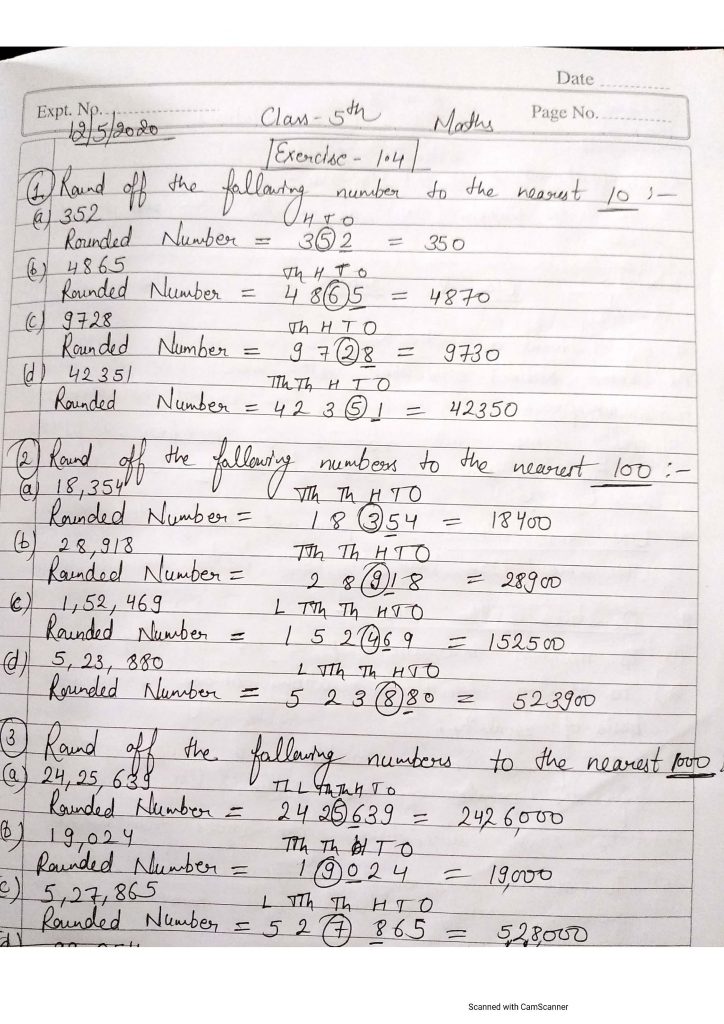 Date
Expt. No. Class - 5th Maths Page No.
12/5/2020
Exercise - 1.4
① Round off the following number to the nearest 10 :-
(a) 352 H T O
Rounded Number = 352 = 350
(b) 4865 Th H T O
Rounded Number = 4865 = 4870
(c) 9728 Th H T O
Rounded Number = 9728 = 9730
(d) 42351 TTh Th H T O
Rounded Number = 42351 = 42350
② Round off the following numbers to the nearest 100 :-
(a) 18,354 TTh Th H T O
Rounded Number = 18354 = 18400
(b) 28,918 TTh Th H T O
Rounded Number = 28918 = 28900
(c) 1,52,469 L TTh Th H T O
Rounded Number = 152469 = 152500
(d) 5,23,880 L TTh Th H T O
Rounded Number = 523880 = 523900
③ Round off the following numbers to the nearest 1000
(a) 24,25,639 TL L TTh Th H T O
Rounded Number = 2425639 = 2426,000
(b) 19,024 TTh Th H T O
Rounded Number = 19024 = 19,000
(c) 5,27,865 L TTh Th H T O
Rounded Number = 527865 = 5,28,000
(d)
Scanned with CamScanner